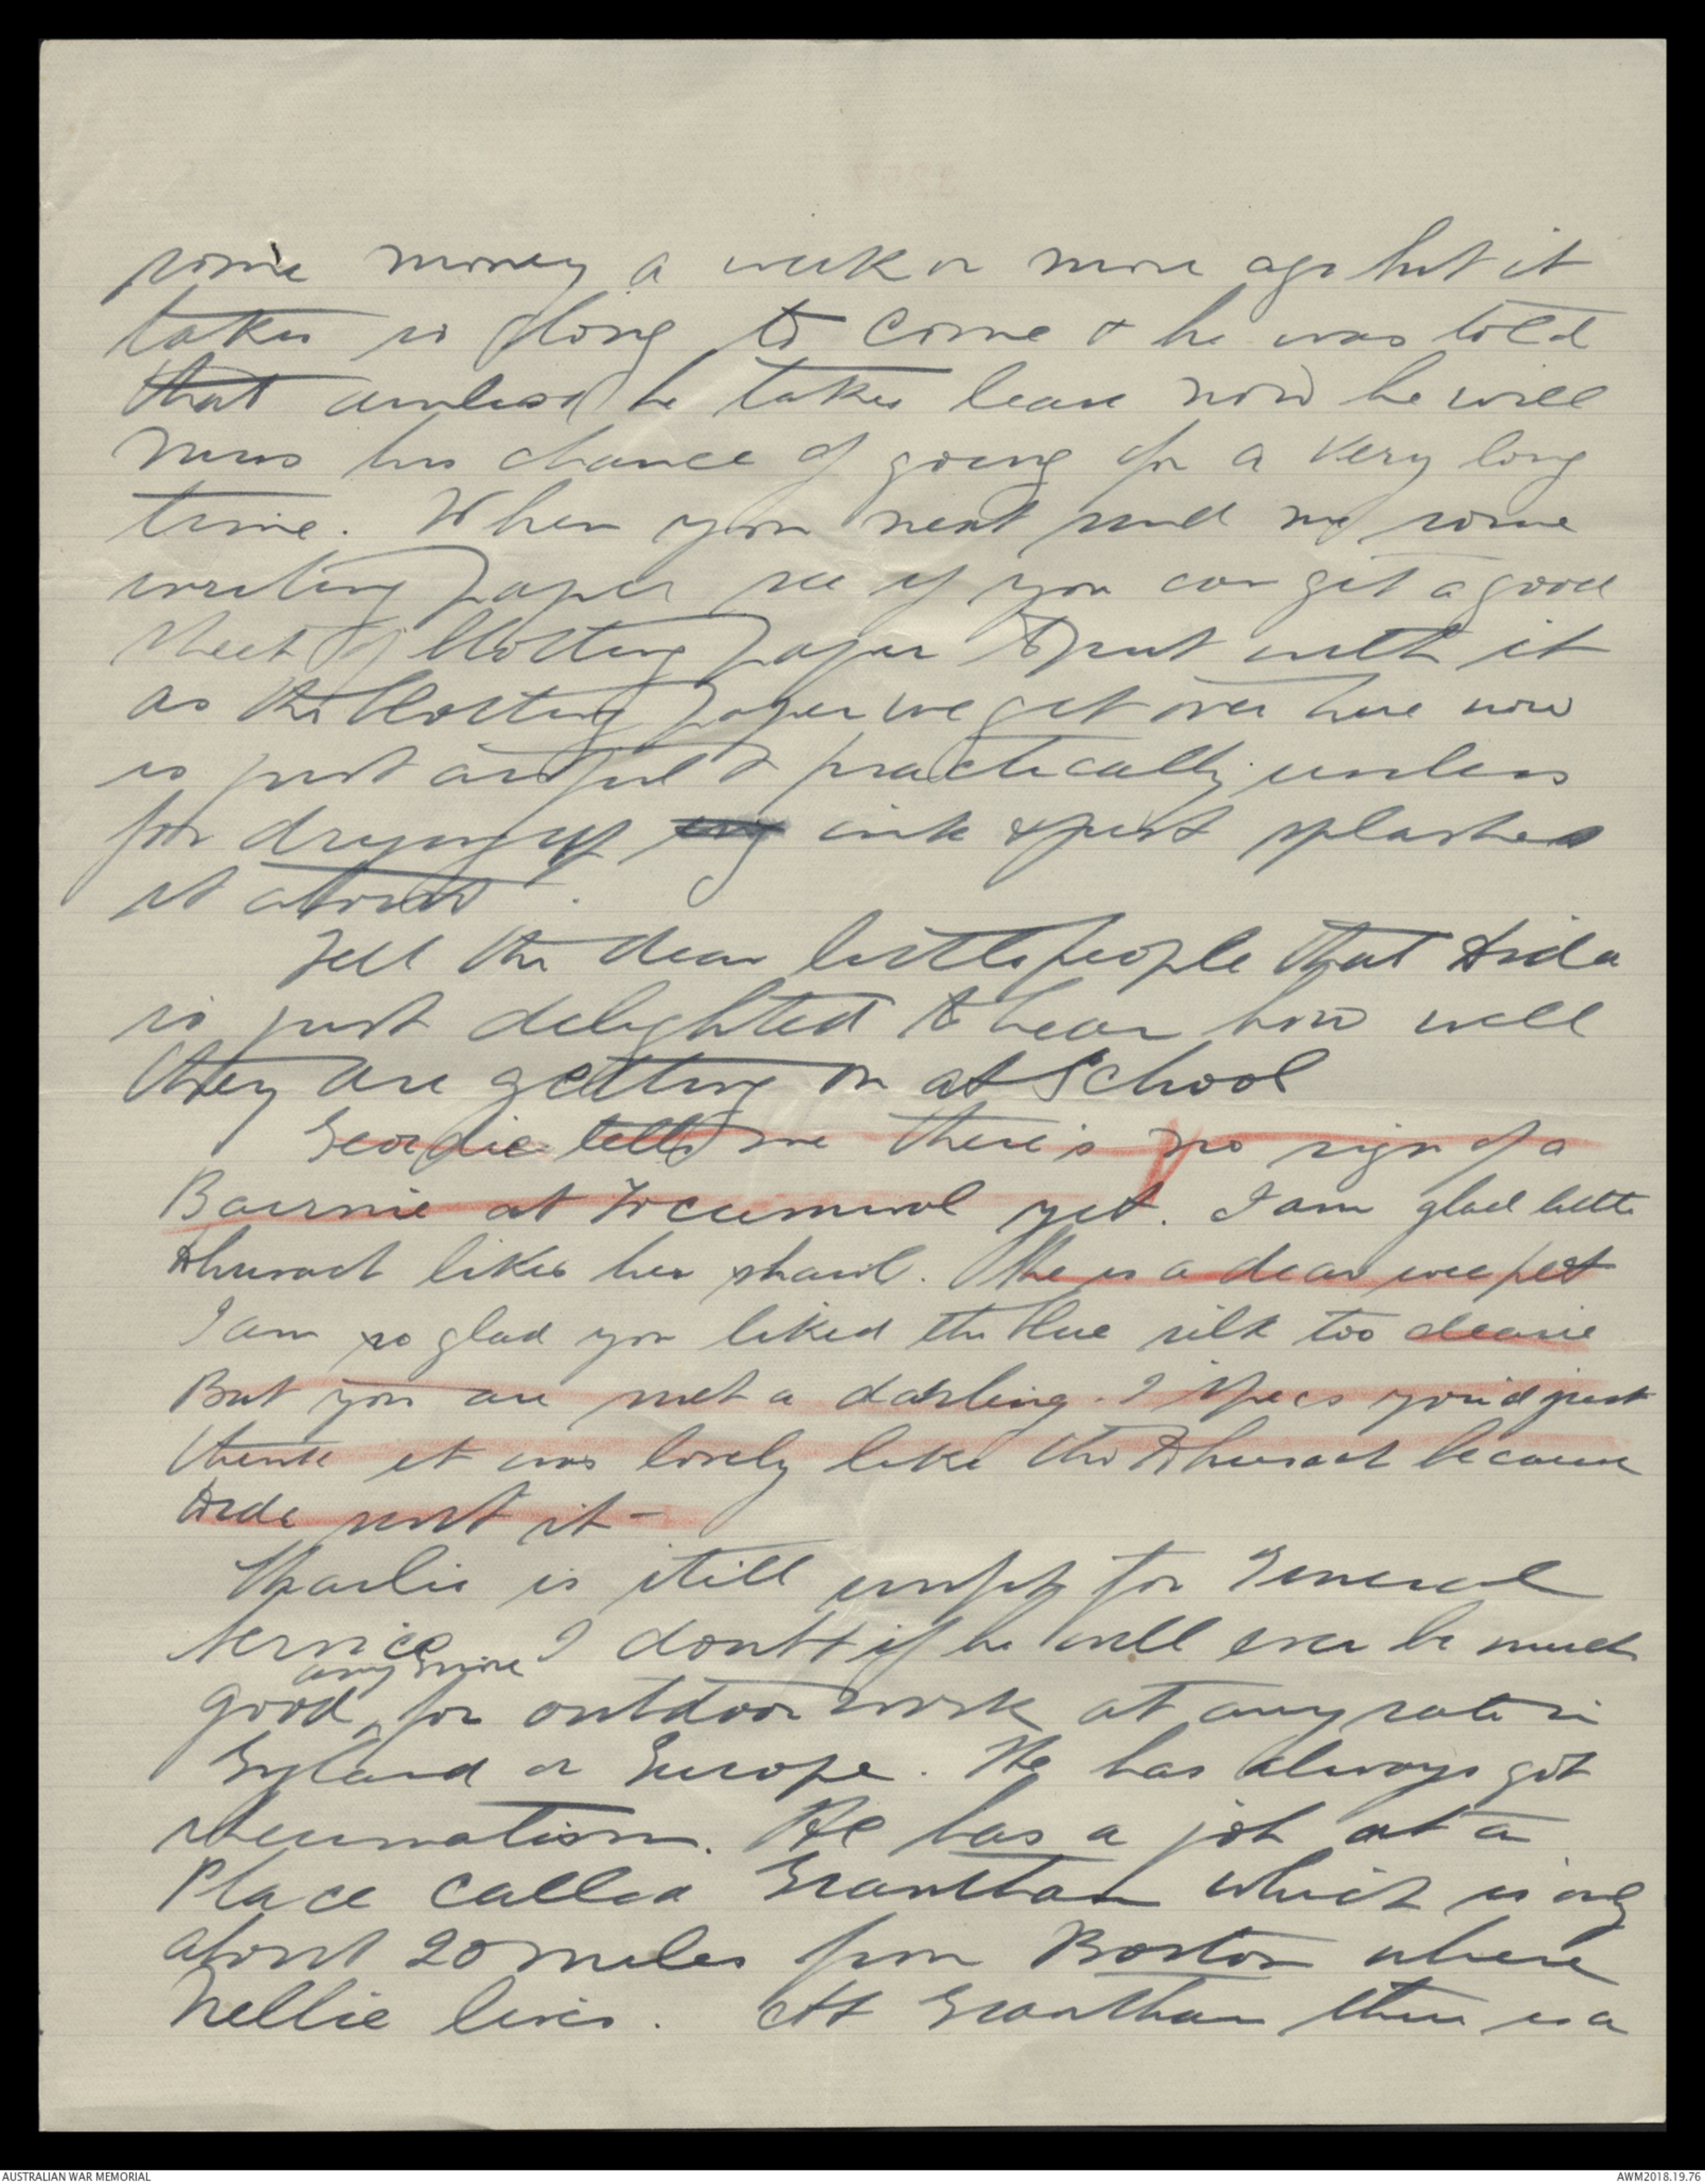 some money a week or more ago but it
takes so long to come & he was told
that unless he takes leave now he will
miss his chance of going for a very long
time. When you next send me some
writing paper see if you can get a good
sheet of blotting paper to put with it
as the blotting paper we get over here now
is just awful & practically useless
for drying up ink & just splashes
it about.
Tell the dear little people that Dida
is just delighted to hear how well
they are getting on at School
Geordie tells me there's no sign of a
Bairnie at Tocumwal yet. I am glad little
likes her shawl. She is a dear wee pet
I am so glad you liked the blue silk too dearie
But you are just a darling. I 'spec's you'd just
think it was lovely like the because
Dida sent it -
Charlie is still unfit for General
Service I dont + if he will ever be much
good any more for outdoor work at any rate in
England or Europe. He has always got
rheumatism. He has a job at a
Place called Grantham which is only
about 20 miles from Boston where
Nellie lives. At Grantham there is a
AUSTRALIAN WAR MEMORIAL
AWM2018.19.76